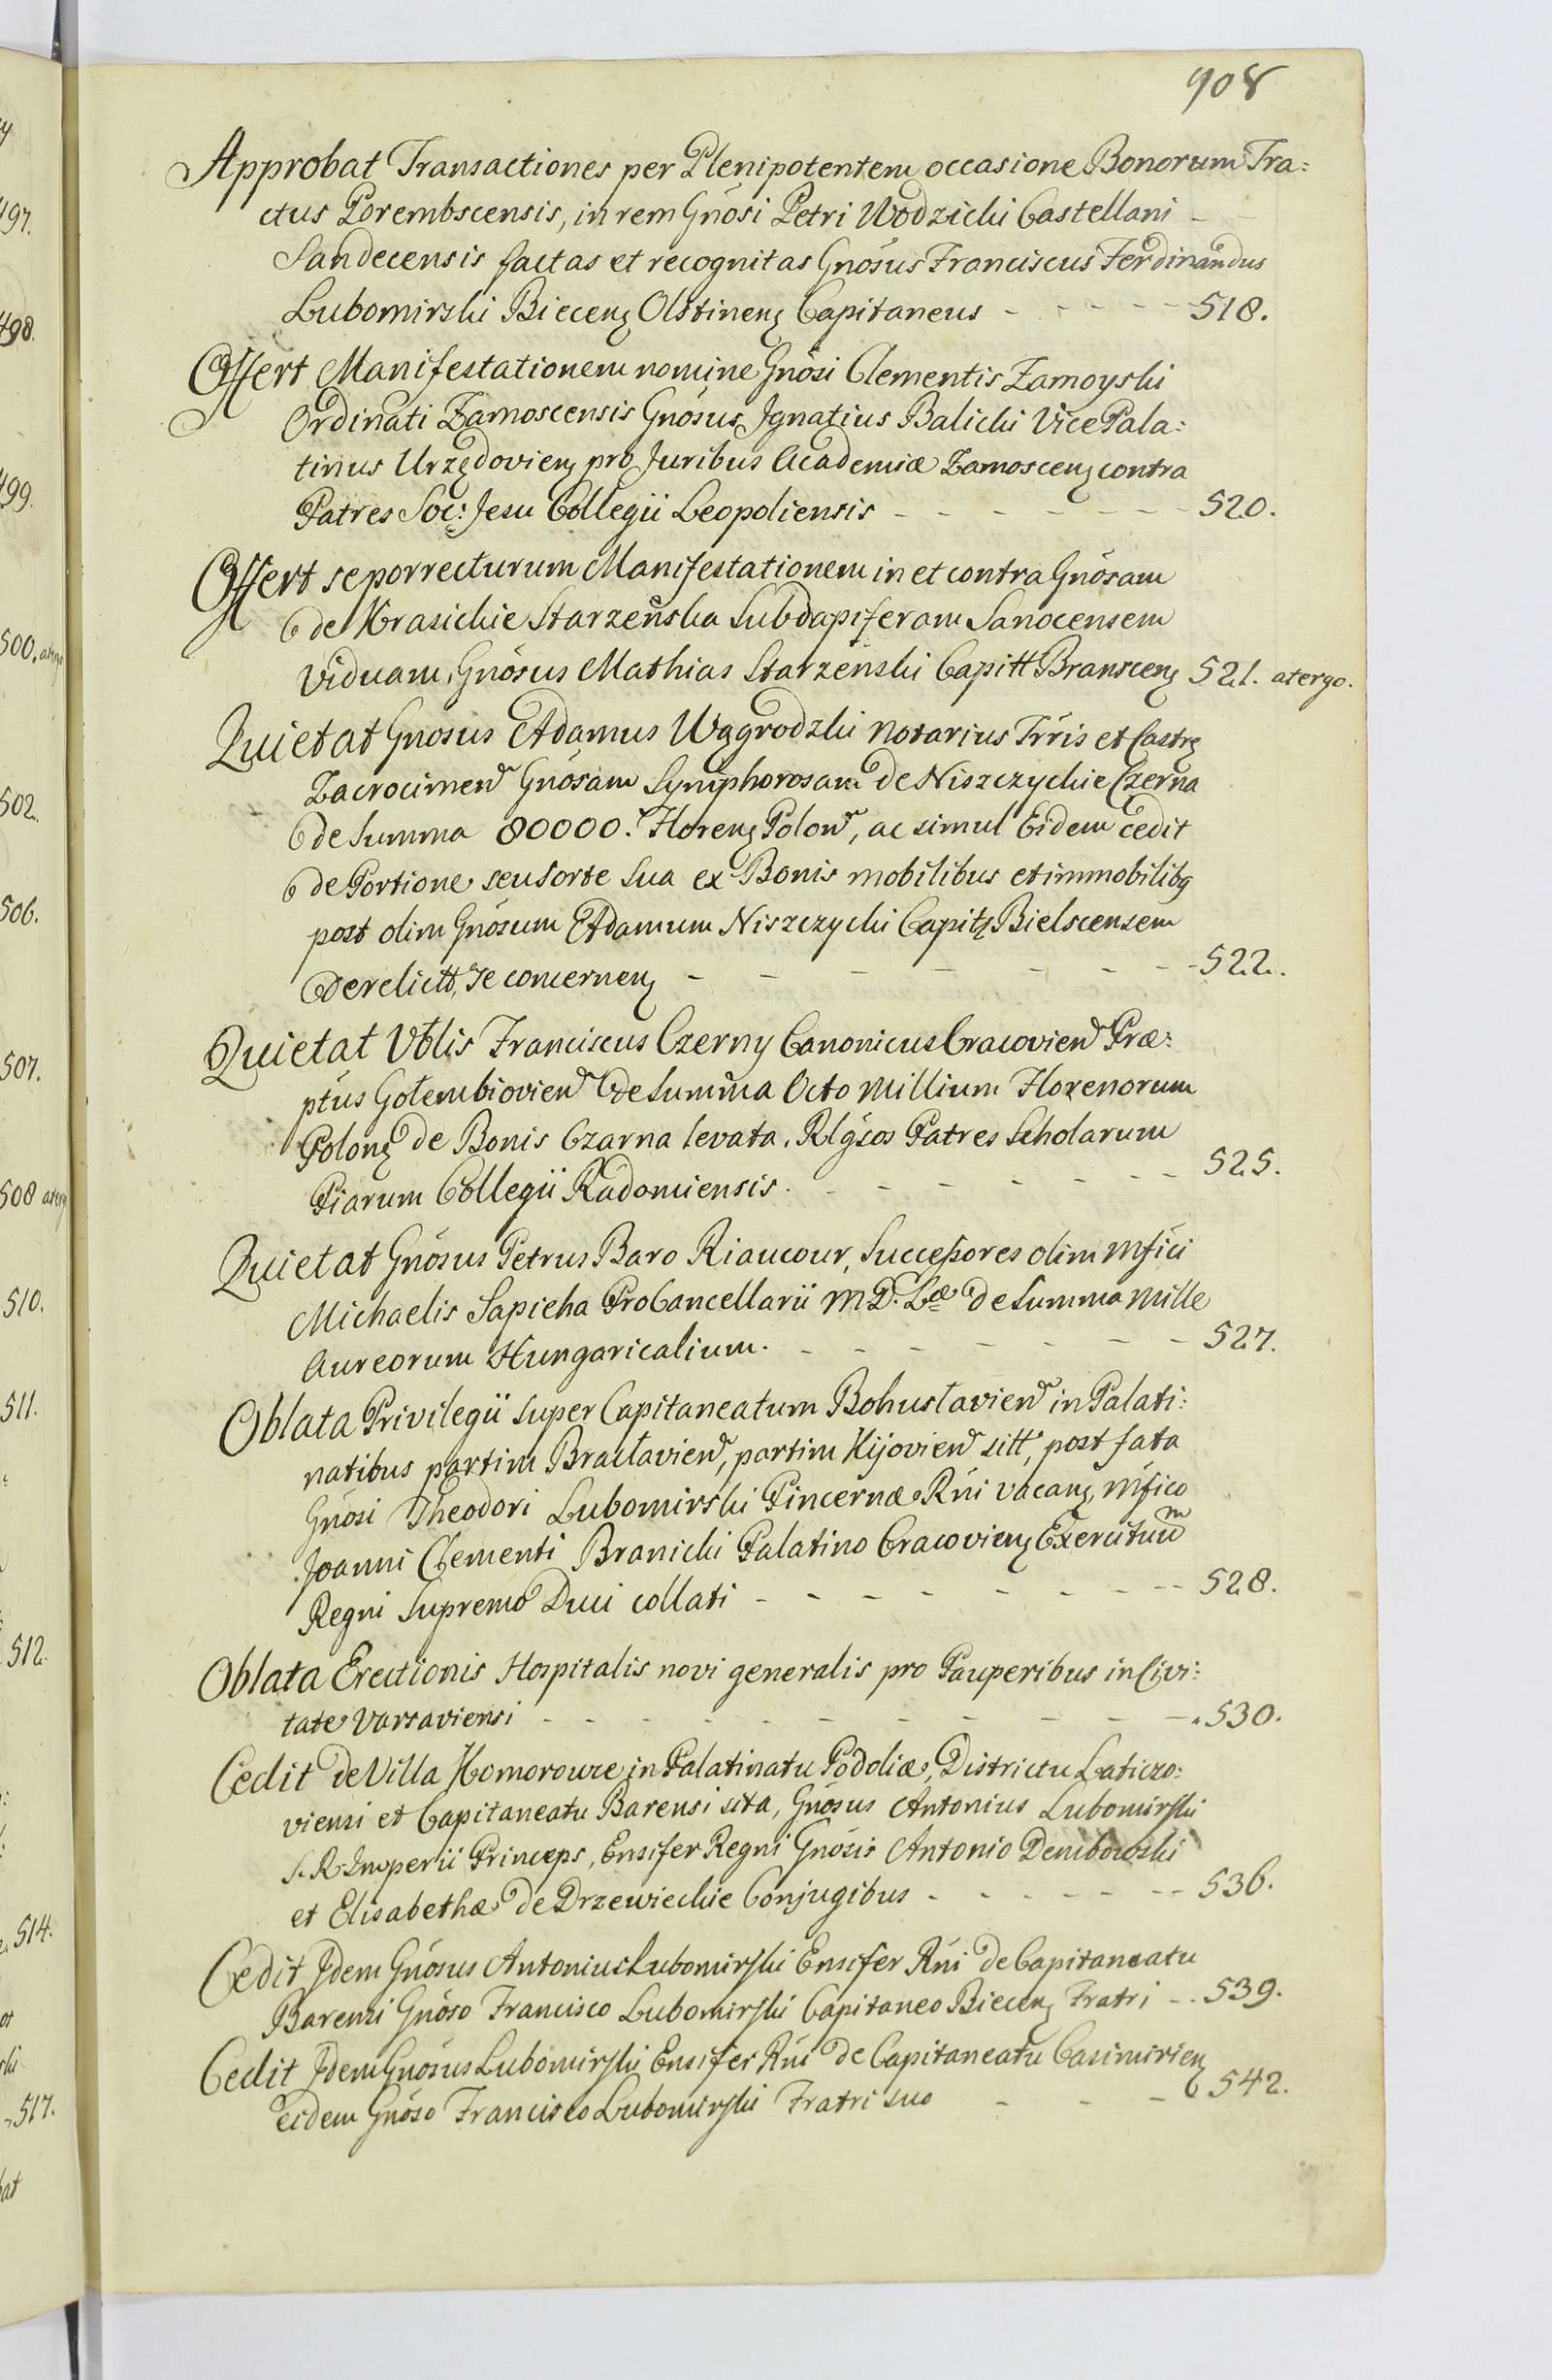 908
Approbat Transactiones per Plenipotentem occasione Bonorum Tra:
ctus Porembscensis, in rem Gnosi Petri Wodzicki Castellani - -
Sandecensis factas et recognitas Gnosus Franciscus Ferdinandus
Lubomirski Bieceny Olstineny Capitaneus - - - - - 518.
Offert Manifestationem nomine Gnosi Clementis Zamoyski
Ordinati Zamoscensis Gnosus Ignatius Balicki Vice Pala:
tinus Urzędovieny pro Juribus Academiæ Zamosceny contra
Patres Soc: Jesu Collegii Leopoliensis - - - - - - 520.
Offert se porrecturum Manifestationem in et contra Gnosam
de Krasickie Starzeńska Subdapiferam Sanocensem
Viduam, Gnosus Mathias Starzeński Capitt Bransceny 521. atergo.
Quietat Gnosus Adamus Wągrodzki Notarius Trris et Castrę
Zacrocimen Gnosam Symphorosam de Niszczyckie Czerna
de Summa 80000. Floreny Polon, ac simul Eidem cedit
de Portione seu Sorte Sua ex Bonis mobilibus et immobilibq
post olim Gnosum Adamum Niszczycki Capitę Bielscensem
derelictt, se concerneny - - - - - - - 522.
Quietat Vblis Franciscus Czerny Canonicus Cracovien Præ:
ptus Gołembiovien de Summa Octo Millium Florenorum
Polonę de Bonis Czarna levata, Rlgsos Patres Scholarum
Piarum Collegii Radomiensis. - - - - - - 525.
Quietat Gnosus Petrus Baro Riaucour, Successores olim Mfici
Michaelis Sapieha ProCancellarii M. D. Læ de Summa Mille
Aureorum Hungaricalium. - - - - - - 527.
Oblata Privilegii super Capitaneatum Bohuslavien in Palati:
natibus partim Braclavien, partim Kijovien sitt, post fata
Gnosi Theodori Lubomirski Pincernæ Rni vacanę, Mfico
Joanni Clementi Branicki Palatino Cracovieny Exercituum
Regni Supremo Duci collati - - - - - - - 528.
Oblata Erectionis Hospitalis novi generalis pro Pauperibus in Civi:
tate Varsaviensi - - - - - - - - - - 530.
Cedit de Villa Komorowce in Palatinatu Podoliæ, Districtu Laticzo:
viensi et Capitaneatu Barensi sita, Gnosus Antonius Lubomirski
S. R. Imperii Princeps, Ensifer Regni Gnosis Antonio Dembowski
et Elisabethæ de Drzewieckie Conjugibus - - - - - - 536.
Cedit Idem Gnosus Antonius Lubomirski Ensifer Rni de Capitaneatu
Barensi Gnoso Francisco Lubomirski Capitaneo Bieceny Fratri - - 539.
Cedit Idem Gnosus Lubomirski Ensifer Rni de Capitaneatu Casimirieny
eidem Gnoso Francisco Lubomirski Fratri suo - - - 542.
497.
498.
499.
500. atergo
502.
506.
507.
508 aterg
510.
511.
512.
514.
517.